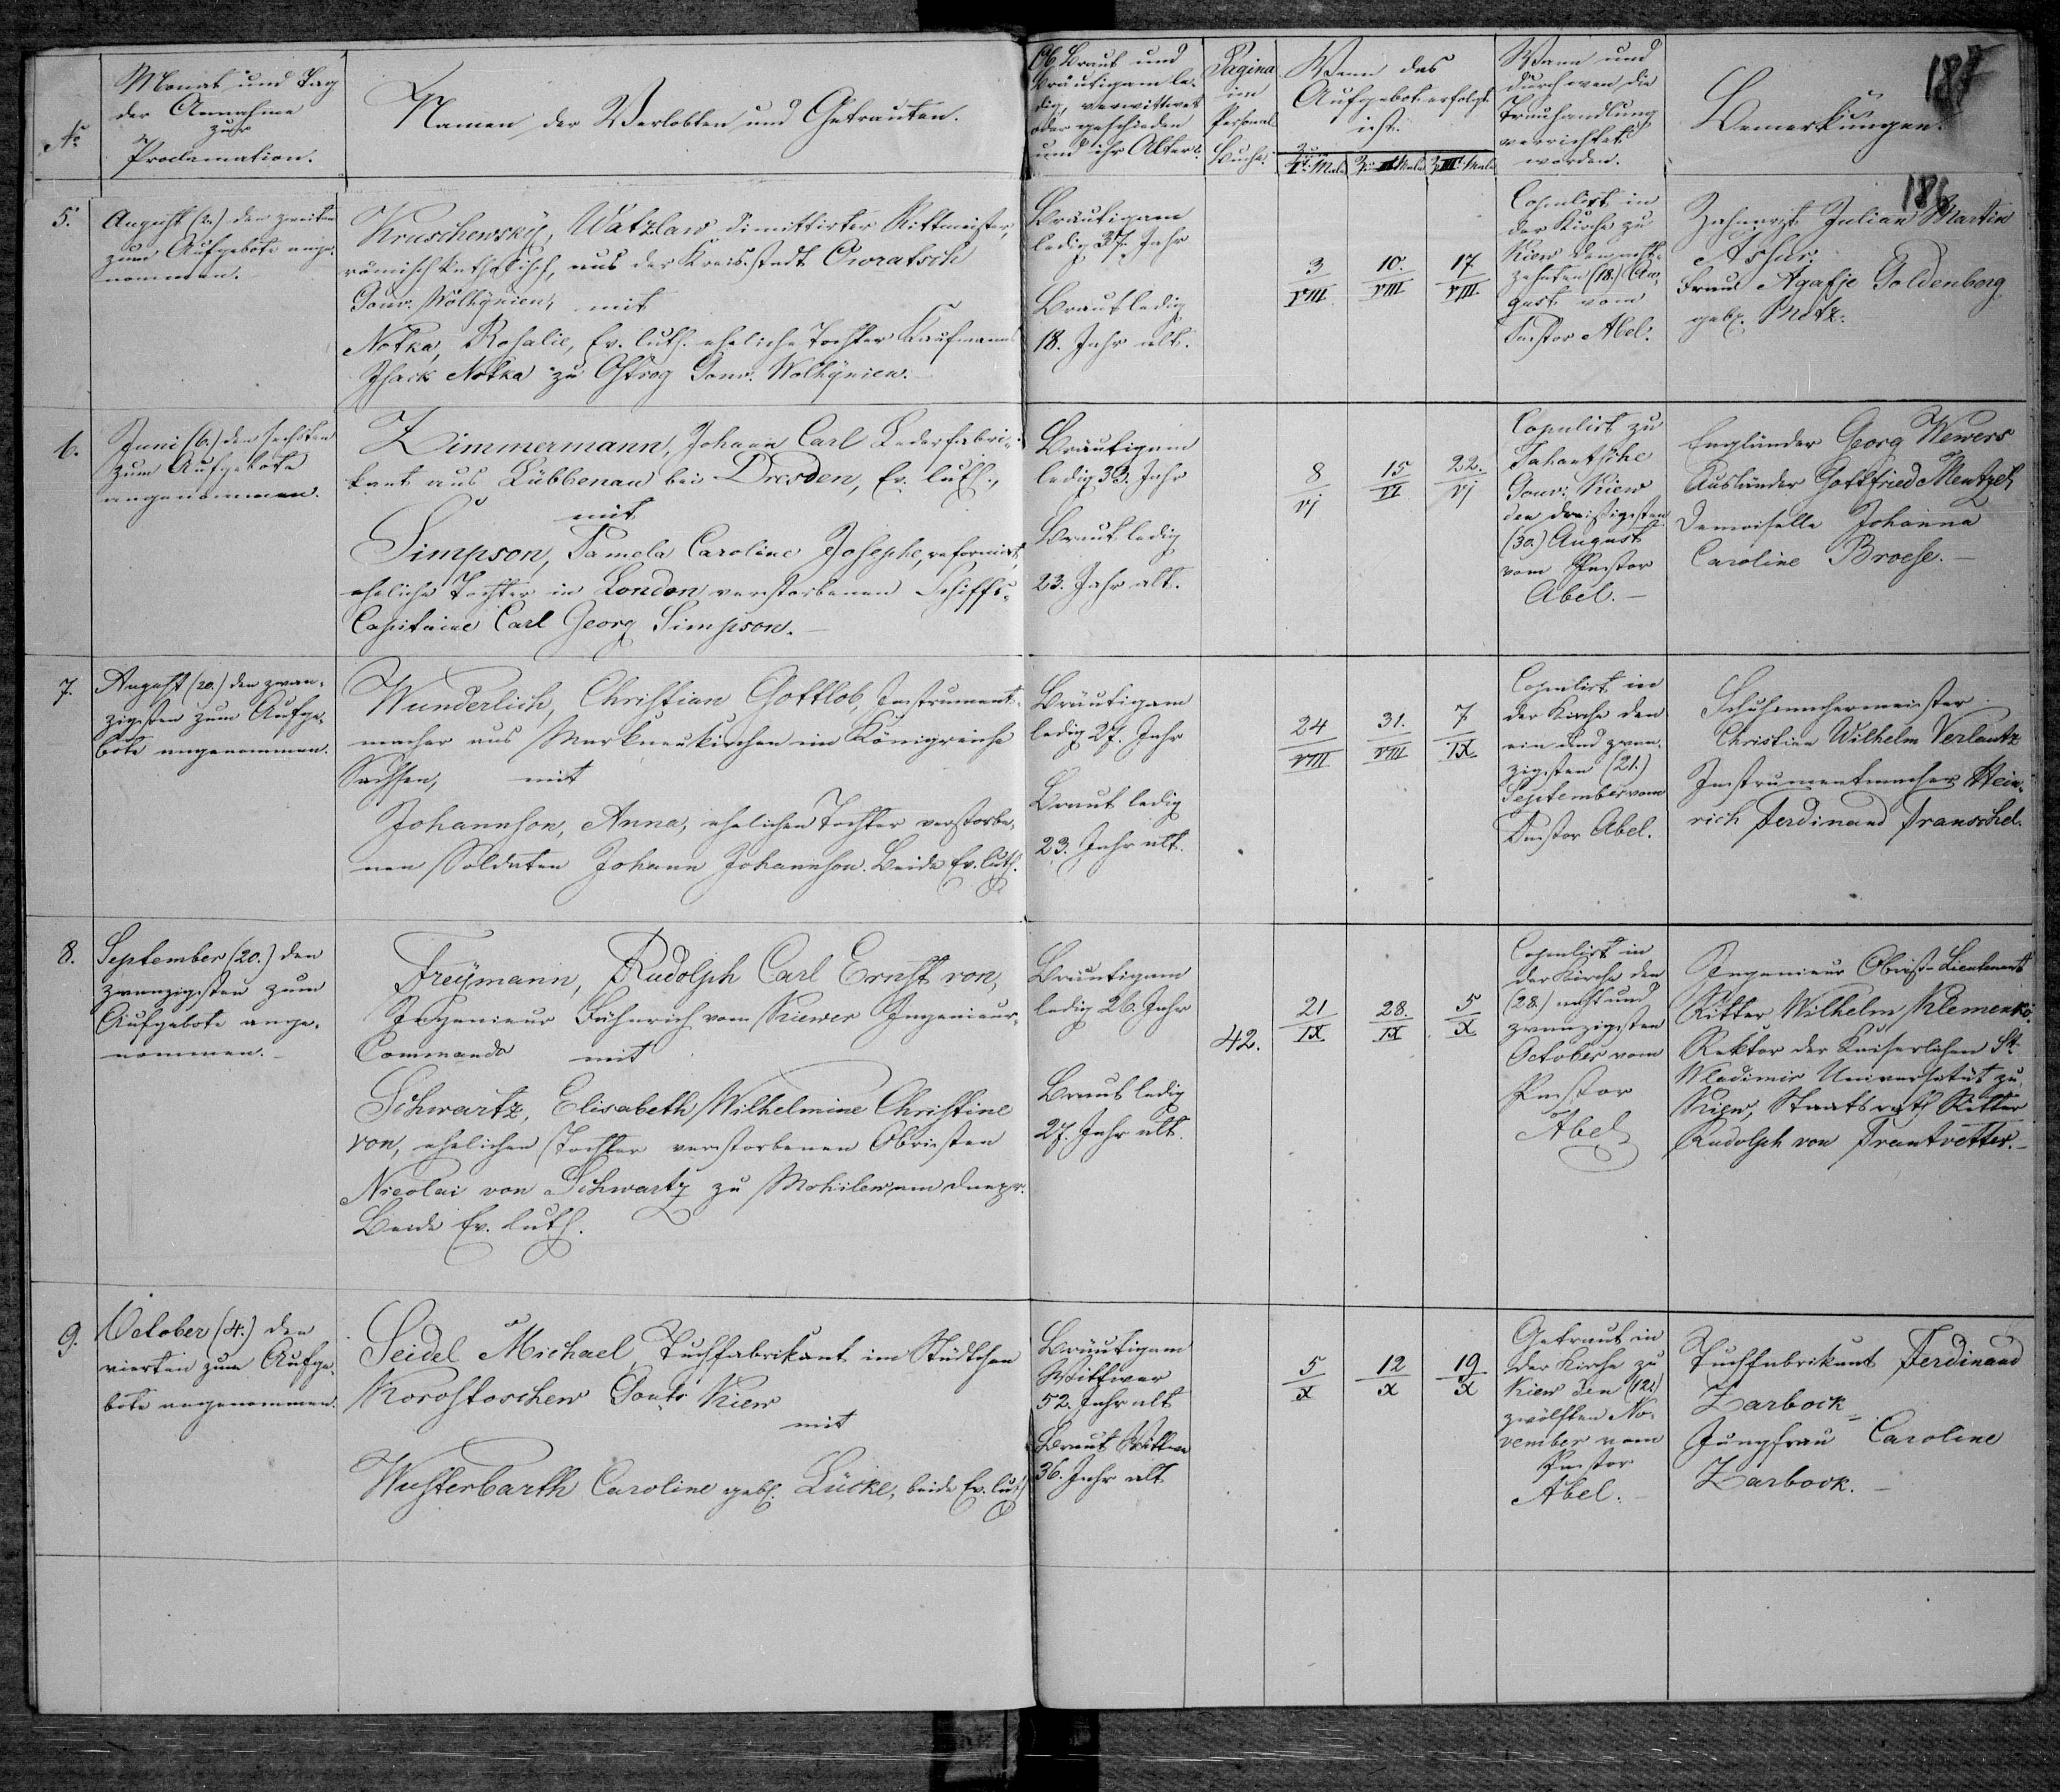 187
186
No
Monat und Tag
der Annahme
zur
Proclamation.
Namen der Verlobten und Getrauten.
Ob Braut und
Bräutigam le-
dig, verwittwet
oder geschieden
und ihr Alter.
Pagina
im
Personal
Buche.
Wann das
Aufgebot erfolgt
ist.
Zu I. Male
Z. II Male
Z. III Male
Wann und
durch wen die
Trauhandlung
verrichtet
worden.
Bemerkungen.
5.
August (2.) den zweiten
zum Aufgebote ange-
nommen.
Kruschewsky, Watzlaw dimittirter Rittmeister,
römisch katholisch, aus der Kreisstadt Owratsch
Gouv. Wolhynien, mit
Notka, Rosalie, Ev. luth. eheliche Tochter Kaufmanns
Isack Notka zu Ostrog Gouv. Wolhynien.
Bräutigam
ledig 37. Jahr
Braut ledig
18. Jahr alt.
3
VIII
10.
VIII
17
VIII
Copulirt in
der Kirche zu
Kiew den acht-
zehnten (18.) Au-
gust vom
Pastor Abel.
Zahnarzt Julian Martin
Asher.
Frau Agafje Goldenberg
geb.
6.
Juni (6.) den sechsten
zum Aufgebote
angenommen.
Zimmermann, Johann Carl Lederfabri-
kant aus Lübbenau bei Dresden, Ev. luth.,
mit
Simpson, Pamela Caroline Josephe, reformirt,
eheliche Tochter in London verstorbenen Schiffs-
Capitaine Carl Georg Simpson.
Bräutigam
ledig 33. Jahr
Braut ledig
23. Jahr alt.
8
vj
15
VI
22.
vj
Copulirt zu
Tahantsche
Gouv. Kiew
den dreißigsten
(30.) August
vom Pastor
Abel.
Engländer Georg Wewers
Ausländer Gottfried Mentzel
Demoiselle Johanna
Caroline Broese.
7.
August (20.) den zwan-
zigsten zum Aufge-
bote angenommen.
Wunderlich, Christian Gottlob, Instrument-
macher aus Markneukirchen im Königreiche
Sachsen, mit
Johannson, Anna, ehelichen Tochter verstorbe-
nen Soldaten Johann Johannson. Beide Ev. luth.
Bräutigam
ledig 27. Jahr
Braut ledig
23. Jahr alt.
24
VIII
31.
VIII
7
IX
Copulirt in
der Kirche den
ein und zwan-
zigsten (21.)
September vom
Pastor Abel.
Schuhmachermeister
Christian Wilhelm Verlautz
Instrumentmacher Hein-
rich Ferdinand Franschel.
8.
September (20.) den
zwanzigsten zum
Aufgebote ange-
nommen.
Freymann, Rudolph Carl Ernst von,
Ingenieur Fähnrich vom Kiewer Ingenieur-
Commando mit
Schwartz, Elisabeth Wilhelmine Christine
von, ehelichen Tochter verstorbenen Obristen
Nicolai von Schwartz zu Mohilew am Dnepr.
Beide Ev. luth.
Bräutigam
ledig 26. Jahr
Braut ledig
27. Jahr alt.
42.
21
IX
28.
IX
5
X
Copulirt in
der Kirche den
(28.) acht und
zwanzigsten
October vom
Pastor
Abel
Ingenieur Obrist-Lieutenant
Ritter Wilhelm Klemenko.
Rektor der Kaiserlichen St.
Wladimir Universität zu
Kiew, Staatsrath Ritter
Rudolph von Trautvetter.
9.
October (4.) den
vierten zum Aufge-
bote angenommen.
Seidel Michael, Tuchfabrikant im Städtchen
Korostoschew Gouv. Kiew
mit
Wusterbarth Caroline geb. Lücke, beide Ev. luth
Bräutigam
Wittwer
52. Jahr alt
Braut Wittwe
36. Jahr alt
5
X
12
X
19
X
Getraut in
der Kirche zu
Kiew den (12.)
zwölften No-
vember vom
Pastor
Abel.
Tuchfabrikant Ferdinand
Zarbock
Jungfrau Caroline
Zarbock.